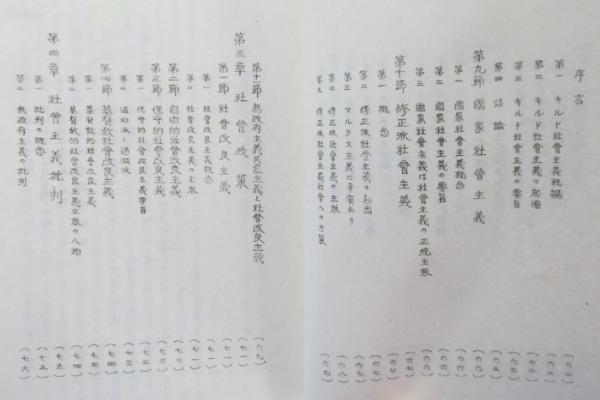 序言
第一 ギルド社會主義概論 (六二)
第二 ギルド社會主義の起源 (六二)
第三 ギルド社會主義の要旨 (六三)
第四 結論 (六五)
第九節 國家社會主義 (六六)
第一 國家社會主義概念 (六六)
第二 國家社會主義の要旨
第三 國家社會主義は社會主義の正統主張
第十節 修正派社會主義 (六七)
第一 概念 (六七)
第二 修正派社會主義の起因
第三 マルクス主義に爭有あり
第四 修正派社會主義の主張 (六八)
第五 修正派社會主義社會への方策 (六九)
第十一節 無政府主義共産主義と社會改良主義 (六九)
第三章 社會政策 (七一)
第一節 社會改良主義 (七一)
第一 社會改良主義概念 (七一)
第二 社會改良主義の主張
第二節 自由的社會改良主義 (七二)
第三節 保守的社會改良主義
第一 保守的社會改良主義要旨 (七三)
第二 温和派と過激派 (七三)
第四節 基督敎的社會改良主義 (七四)
第一 基督敎的社會改良主義
第二 基督敎的社會改良主義主張の人物 (七四)
第四章 社會主義批判 (七五)
第一 批判の概念 (七五)
第二 無政府主義の批判 (七六)